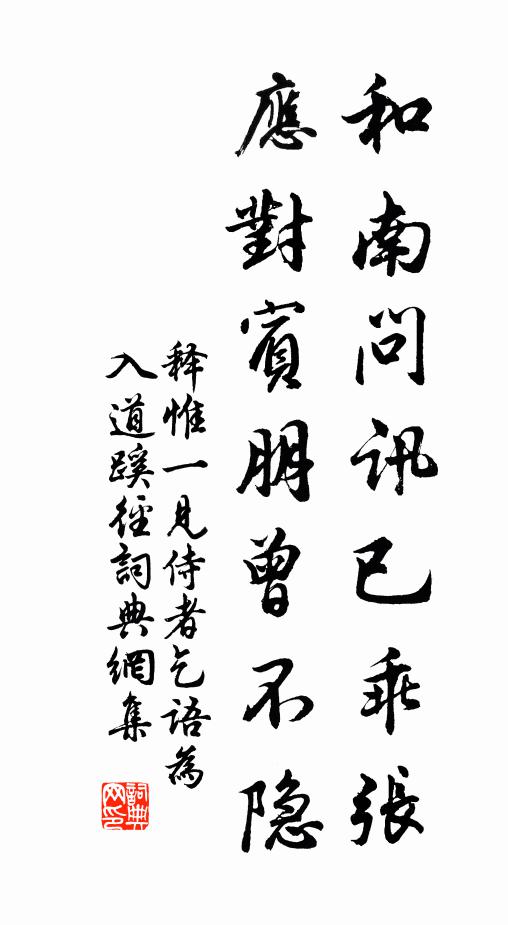 和南問訊已乖張
應對賓朋曾不隐
释惟一見侍者乞語為
入道蹊徑詞典網集
詞典网印